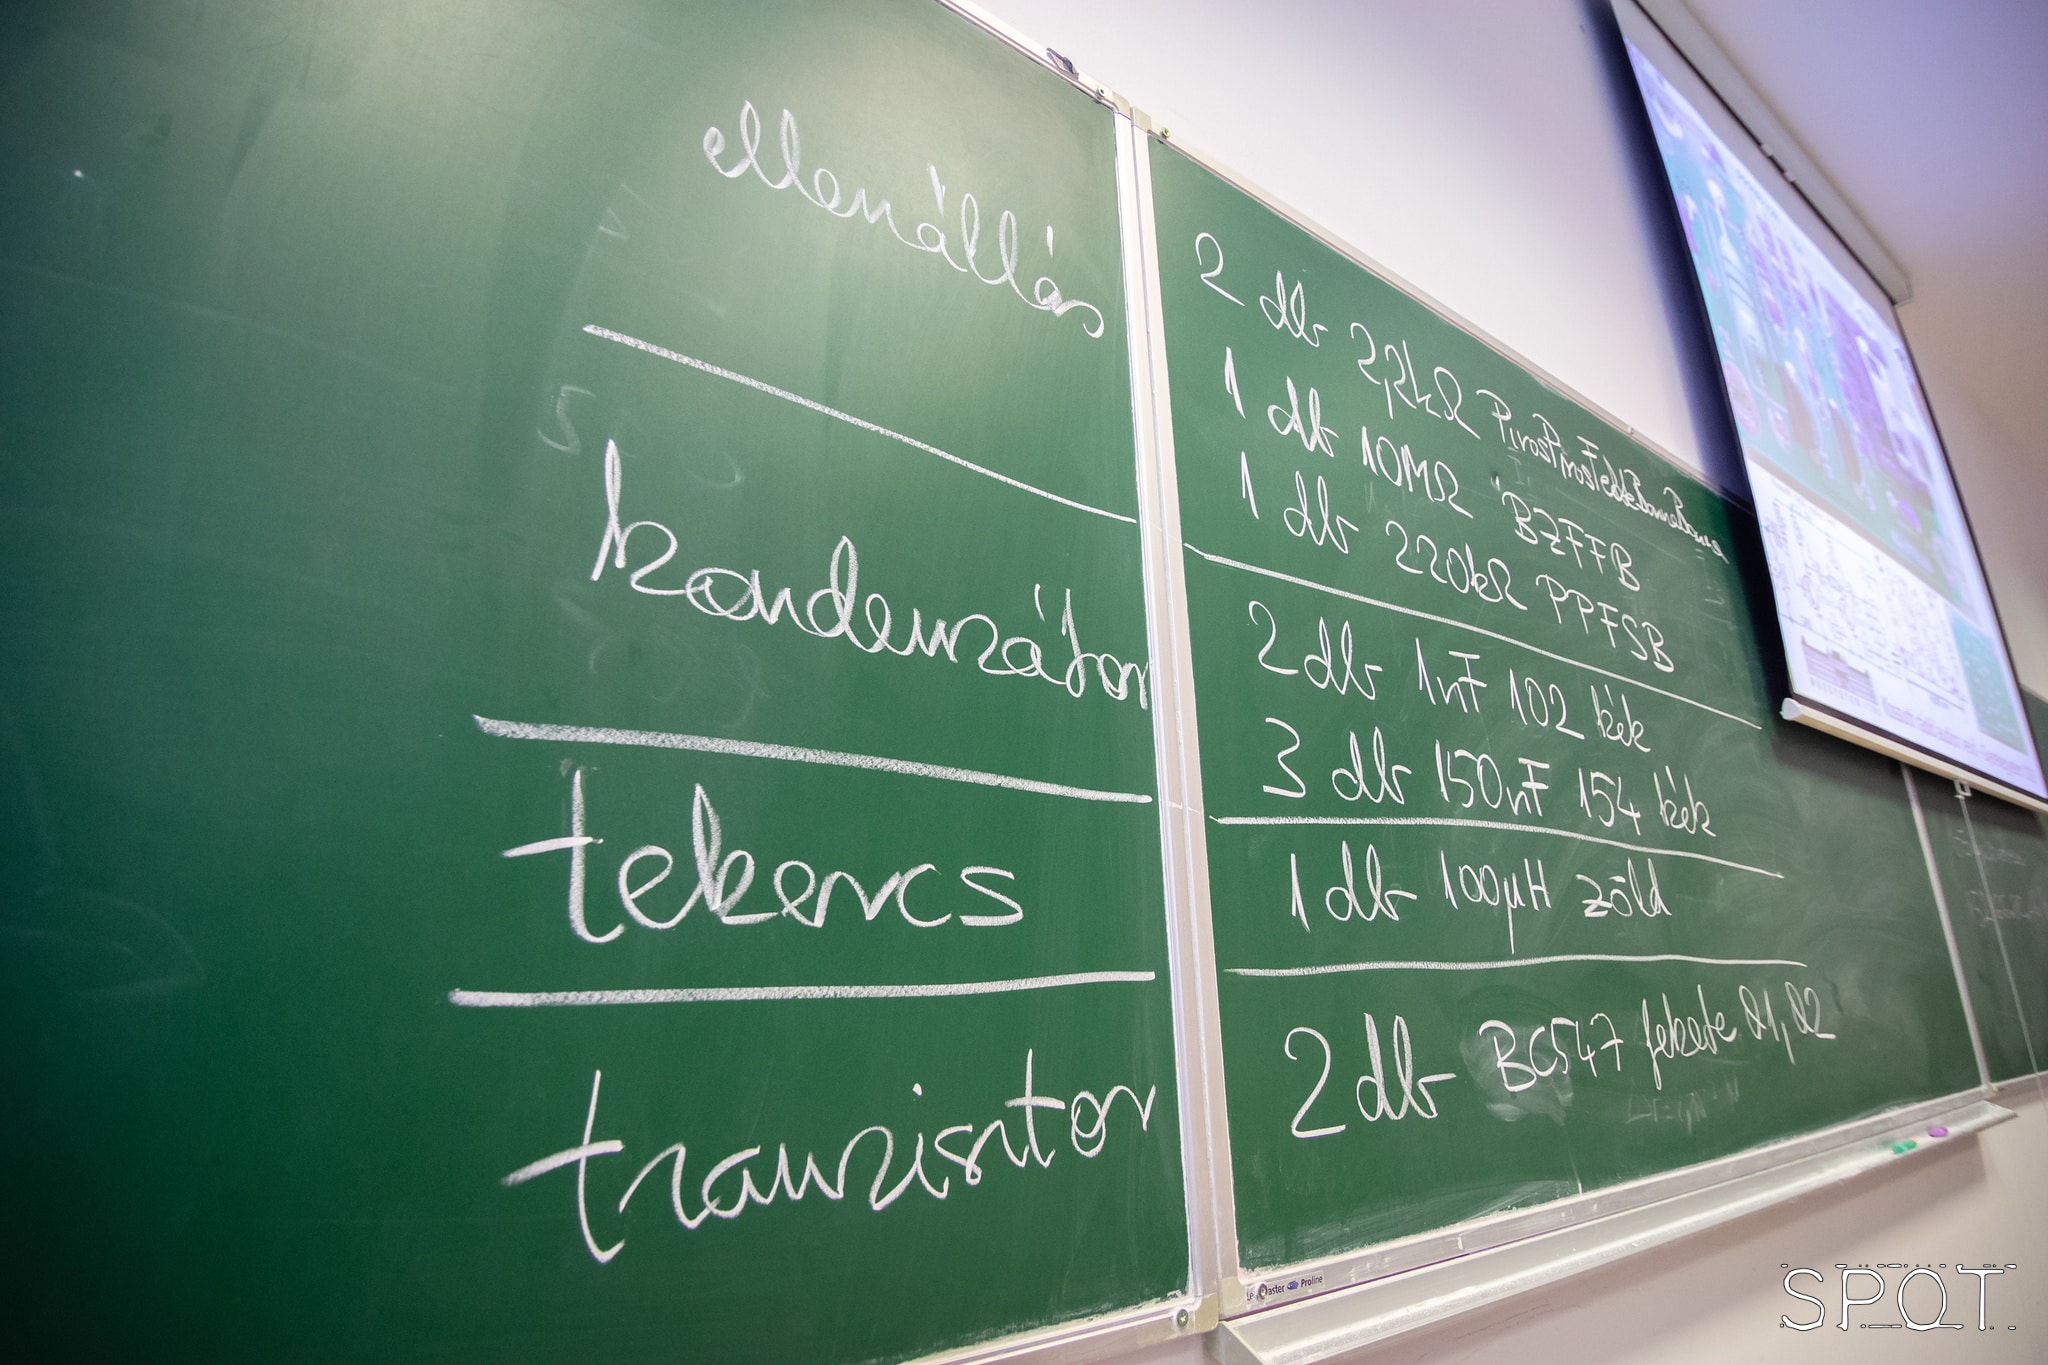 ellenállás
kondenzátor
tekercs
tranzisztor
2 db 22kΩ PirosPirosFeketeBarnaBarna
1 db 10MΩ BZFFB
1 db 220kΩ PPFSB
2 db 1nF 102 kék
3 db 150nF 154 kék
1 db 100µH zöld
2 db BC547 fekete Q1, Q2
Proline
SPOT